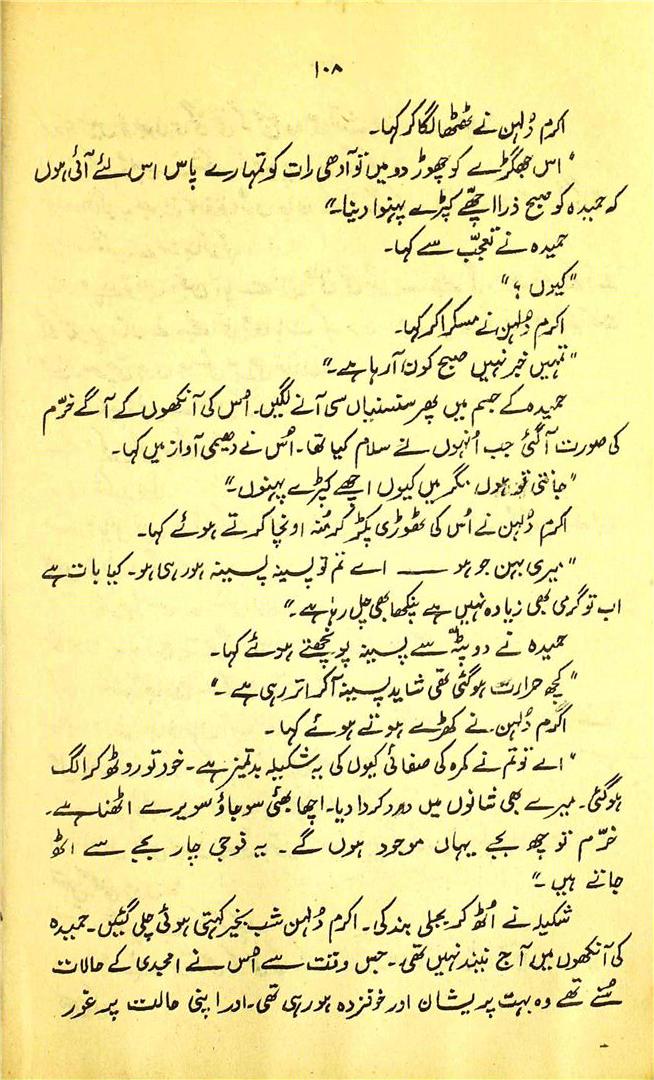 ۱۰۸
اکرم دُلہن نے ٹھٹھا لگا کر کہا۔
"اس جھگڑے کو چھوڑ دو میں تو آدھی رات کو تمہارے پاس اس لئے آئی ہوں
کہ حمیدہ کو صبح ذرا اچھّے کپڑے پہنوا دینا۔"
حمیدہ نے تعجّب سے کہا۔
"کیوں ؟"
اکرم دُلہن نے مسکرا کر کہا۔
"تمہیں خبر نہیں صبح کون آ رہا ہے۔"
حمیدہ کے جسم میں پھر سنسنیاں سی آنے لگیں۔ اُس کی آنکھوں کے آگے خرّم
کی صورت آ گئی جب اُنہوں نے سلام کیا تھا۔ اُس نے دھیمی آواز میں کہا۔
"جانتی تو ہوں مگر میں کیوں اچھے کپڑے پہنوں۔"
اکرم دُلہن نے اُس کی ٹھوڑی پکڑ کر مُنہ اونچا کرتے ہوئے کہا۔
"میری بہن جو ہو —— اے تم تو پسینہ پسینہ ہو رہی ہو۔ کیا بات ہے
اب تو گرمی بھی زیادہ نہیں ہے پنکھا بھی چل رہا ہے۔"
حمیدہ نے دوپٹّہ سے پسینہ پونچھتے ہوئے کہا۔
"کچھ حرارت ہو گئی تھی شاید پسینہ آ کر اتر رہی ہے۔"
اکرم دُلہن نے کھڑے ہوتے ہوئے کہا۔
"اے تو تم نے کمرہ کی صفائی کیوں کی یہ شکیلہ بدتمیز ہے۔ خود تو روٹھ کر الگ
ہو گئی۔ میرے بھی شانوں میں درد کروا دیا۔ اچھا بھئی سو جاؤ سویرے اٹھنا ہے۔
خرّم تو چھ بجے یہاں موجود ہوں گے۔ یہ فوجی چار بجے سے اٹھ
جاتے ہیں۔"
شکیلہ نے اُٹھ کر بجلی بند کی۔ اکرم دُلہن شب بخیر کہتی ہوئی چلی گئیں۔ حمیدہ
کی آنکھوں میں آج نیند نہیں تھی۔ جس وقت سے اُس نے امجدی کے حالات
سُنے تھے وہ بہت پریشان اور خوفزدہ ہو رہی تھی۔ اور اپنی حالت پر غور